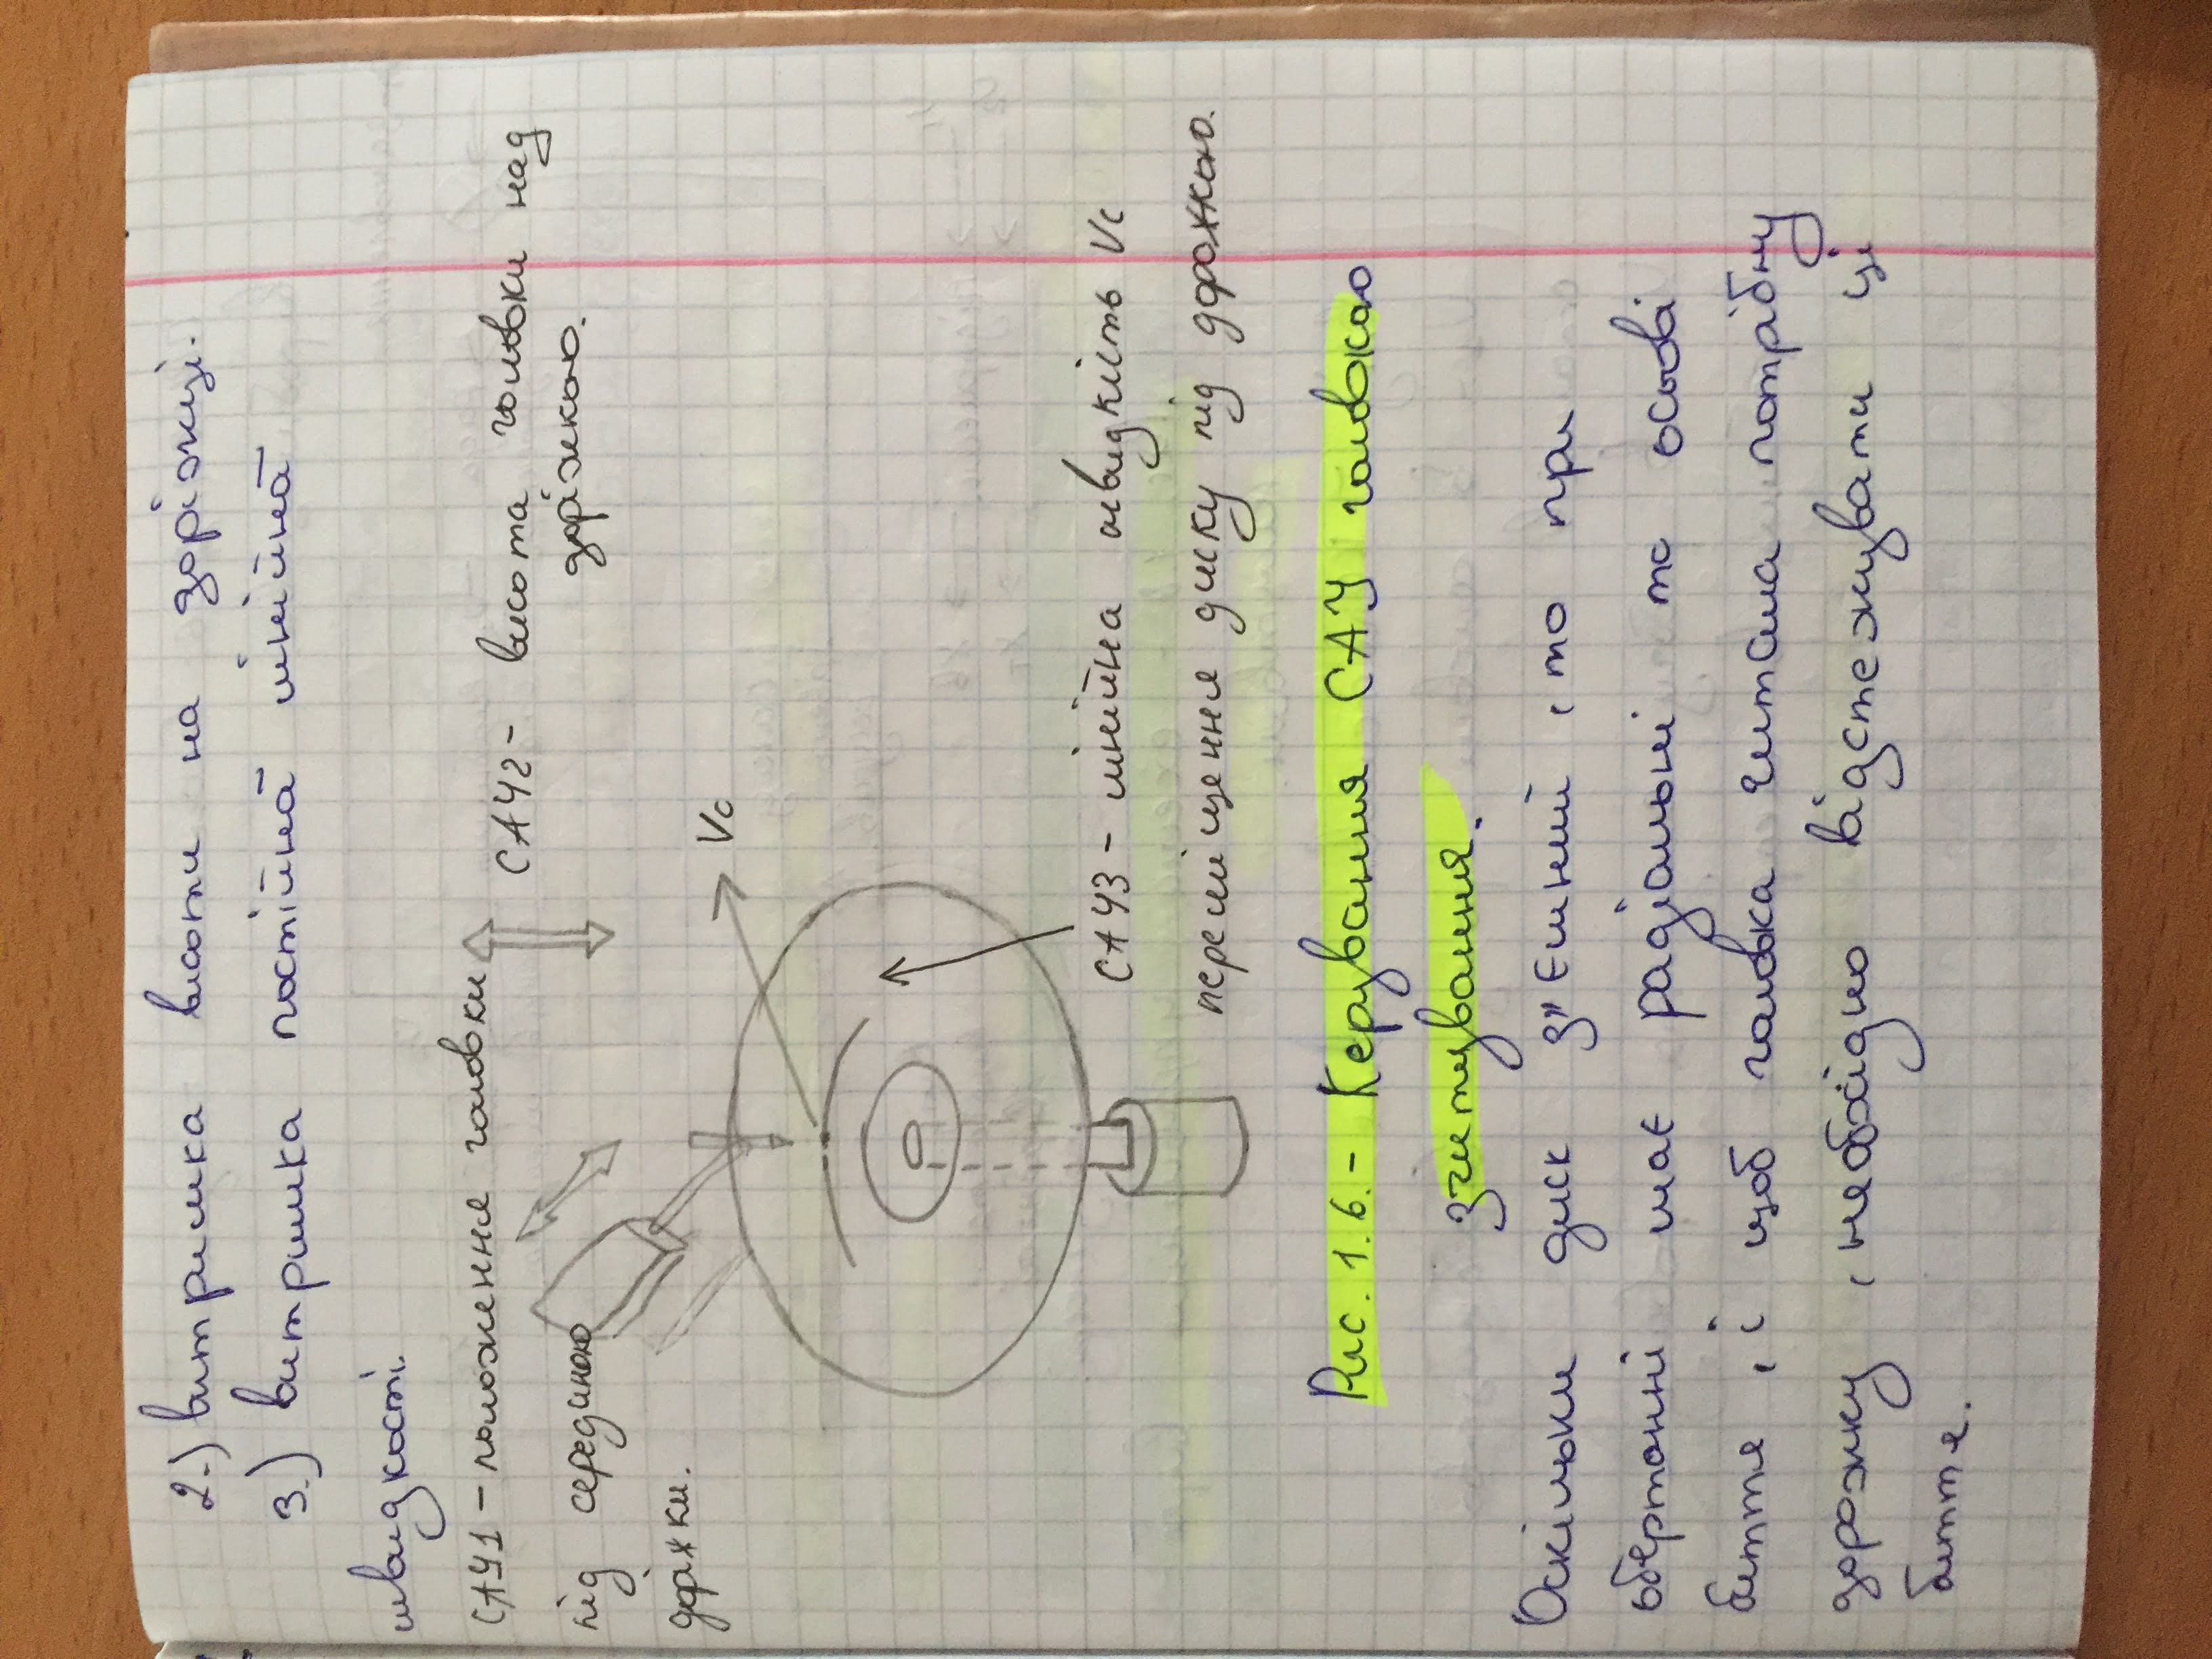 2.) витримка висоти на доріжці.
3.) витримка постійна лінійна
швидкості.
САУ1 – положення головки
під серединою
доріжки.
САУ2 – висота головки над
доріжкою.
Vc
САУ3 – лінійна швидкість Vc
переміщення диску під дорожкою.
Рис. 1.6. – Керування САУ головкою
зчитування.
Оскільки диск з"ємний, то при
обертанні має радіальні та осьові
биття, і щоб головка читала потрібну
дорожку, необхідно відстежувати ці
биття.